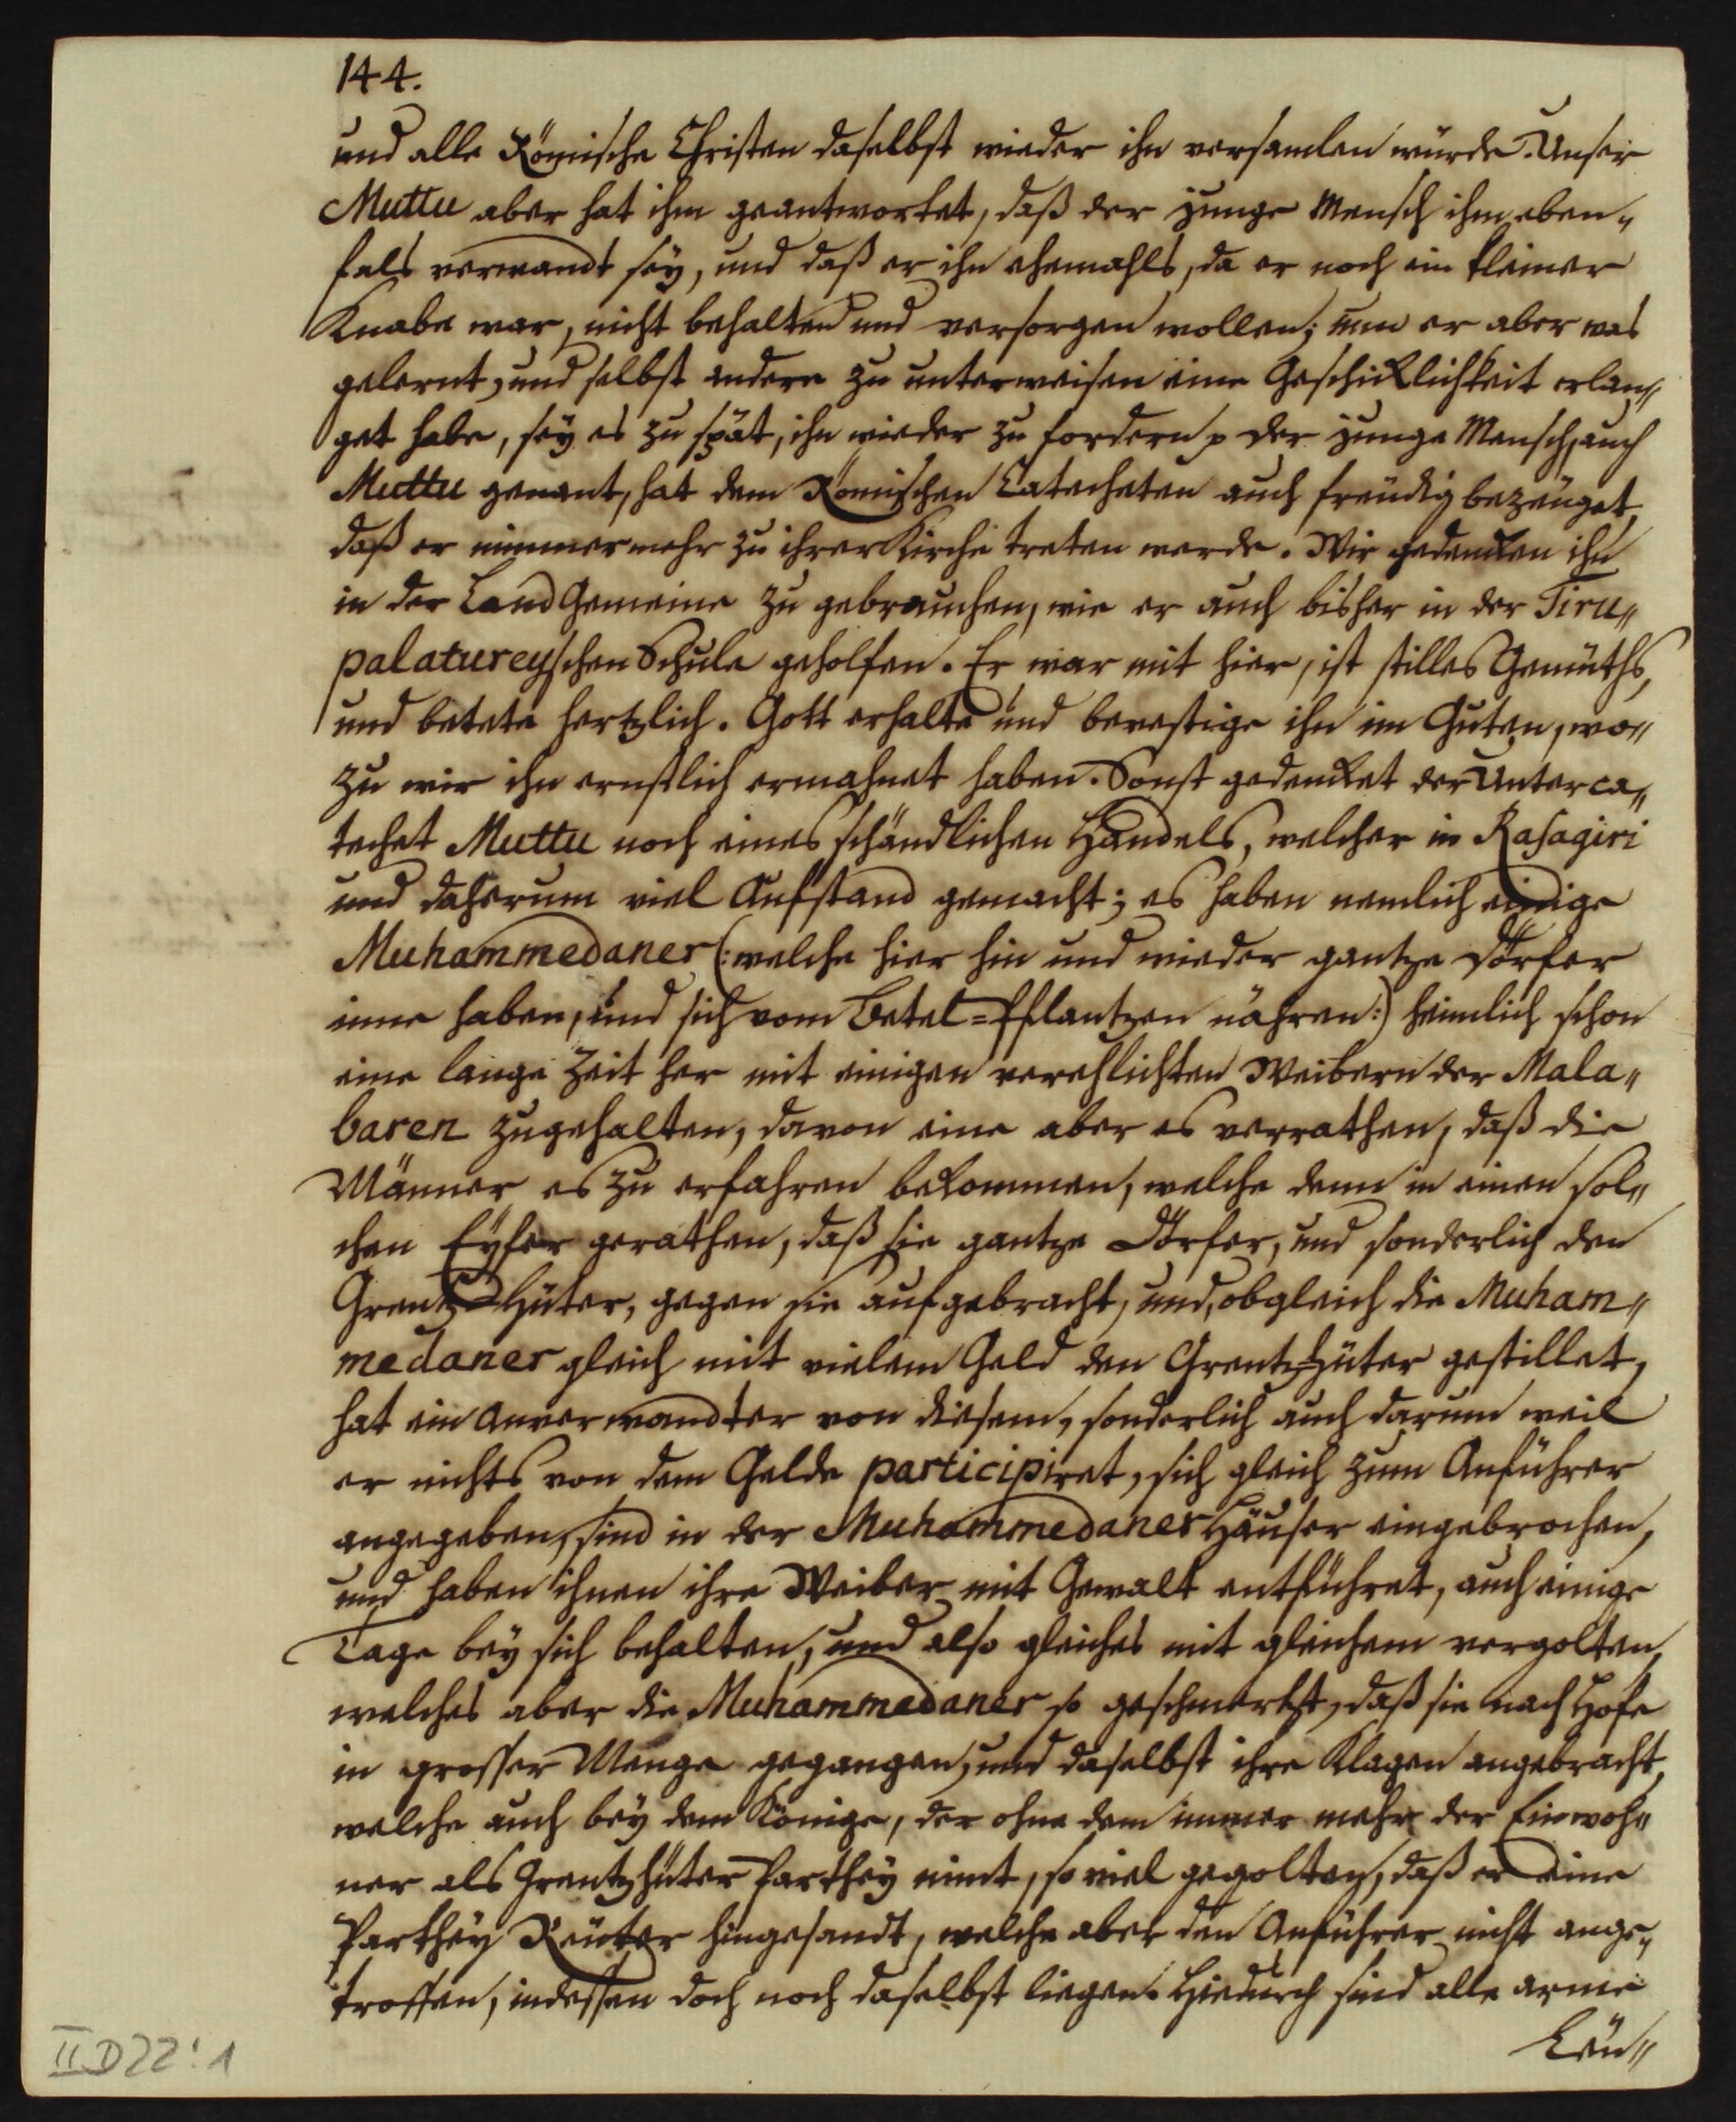 144.
und alle Römische Christen daselbst wieder ihn versamlen würde. Unser
Muttu aber hat ihm geantwortet, daß der junge Mensch ihm eben„
fals verwandt sey, und daß er ihn ehemahls, da er noch ein kleiner
Knabe war, nicht behalten und versorgen wollen; nun er aber was
gelernt, und selbst andere zu unterweisen eine Geschicklichkeit erlan„
get habe, sey es zu spät, ihn wieder zu fordern p der junge Mensch, auch
Muttu genant, hat dem Römischen Catecheten auch freudig bezeuget,
daß er nimmermehr zu ihrer Kirche treten werde. Wir gedencken ihn
in der Land Gemeine zu gebrauchen, wie er auch bisher in der Tiru„
palatureyschen Schule geholfen. Er war mit hier, ist stilles Gemüths,
und betete hertzlich. Gott erhalte und bevestige ihn im Guten, wo„
zu wir ihn ernstlich ermahnet haben. Sonst gedencket der Unterca„
techet Muttu noch eines schändlichen Handels, welcher in Rasagiri
und daherum viel Aufstand gemacht; es haben nemlich einige
Muhammedaner (: welche hier hin und wieder gantze Dörfer
inne haben, und sich vom Betel=Pflantzen nähren :) heimlich schon
eine lange Zeit her mit einigen verehlichten Weibern der Mala„
baren zugehalten, davon eine aber es verrathen, daß die
Männer es zu erfahren bekommen, welche denn in einen sol„
chen Eyfer gerathen, daß sie gantze Dörfer, und sonderlich den
Grentz=Hüter, gegen sie aufgebracht, und, obgleich die Muham„
medaner gleich mit vielem Geld den Grentz=Hüter gestillet,
hat ein Anverwandter von diesem, sonderlich auch darum weil
er nichts von dem Gelde participiret, sich gleich zum Anführer
angegeben, sind in der Muhammedaner Häuser eingebrochen,
und haben ihnen ihre Weiber mit Gewalt entführet, auch einige
Tage bey sich behalten, und also gleiches mit gleichem vergolten,
welches aber die Muhammedaner so geschmertzt, daß sie nach Hofe
in grosser Menge gegangen, und daselbst ihre Klagen angebracht,
welche auch bey dem Könige, der ohne dem immer mehr der Einwoh„
ner als Grentzhüter Parthey nimt, so viel gegolten, daß er eine
Parthey Reuter hingesandt, welche aber den Anführer nicht ange„
troffen, indessen doch noch daselbst liegen. Hiedurch sind alle arme
Leu„
II D 22:1